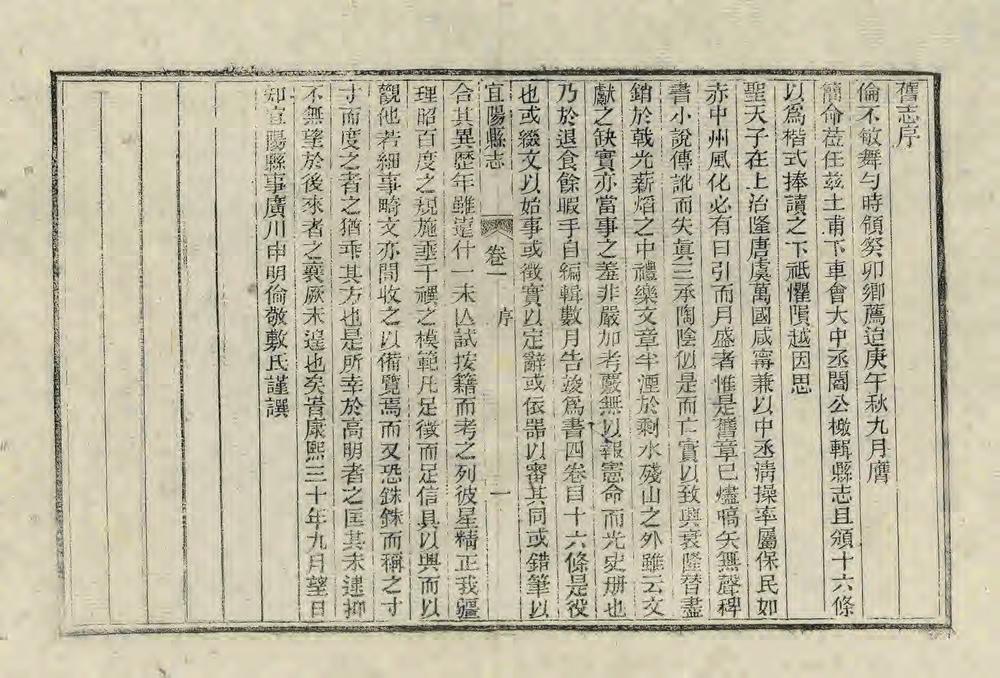 舊志序
倫不敏舞勺時領癸卯鄉薦迨庚午秋九月膺
簡命莅任茲土甫下車會大中丞閻公檄輯縣志且頒十六條
以爲楷式捧讀之下祗懼隕越因思
聖天子在上治隆唐虞萬國咸寧兼以中丞淸操率屬保民如
赤中州風化必有日引而月盛者惟是舊章已燼嗃矢無聲稗
書小說傳訛而失眞三承陶陰似是而亡實以致興衰隆替盡
銷於戟光薪熖之中禮樂文章半湮於剩水殘山之外雖云文
獻之缺實亦當事之羞非嚴加考覈無以報憲命而光史册也
乃於退食餘暇手自編輯數月告竣爲書四卷目十六條是役
也或綴文以始事或徵實以定辭或依器以審其同或錯筆以
宜陽縣志
卷一
序
一
合其異歷年雖遠什一未亾試按籍而考之列彼星精正我疆
理昭百度之規施垂千禩之模範凡足徵而足信具以興而以
觀他若細事畸文亦間收之以備覽焉而又恐銖銖而稱之寸
寸而度之者之猶乖其方也是所幸於高明者之匡其未逮抑
不無望於後來者之襄厥未遑也矣旹康熙三十年九月望日
知宜陽縣事廣川申明倫敬敷氏謹譔